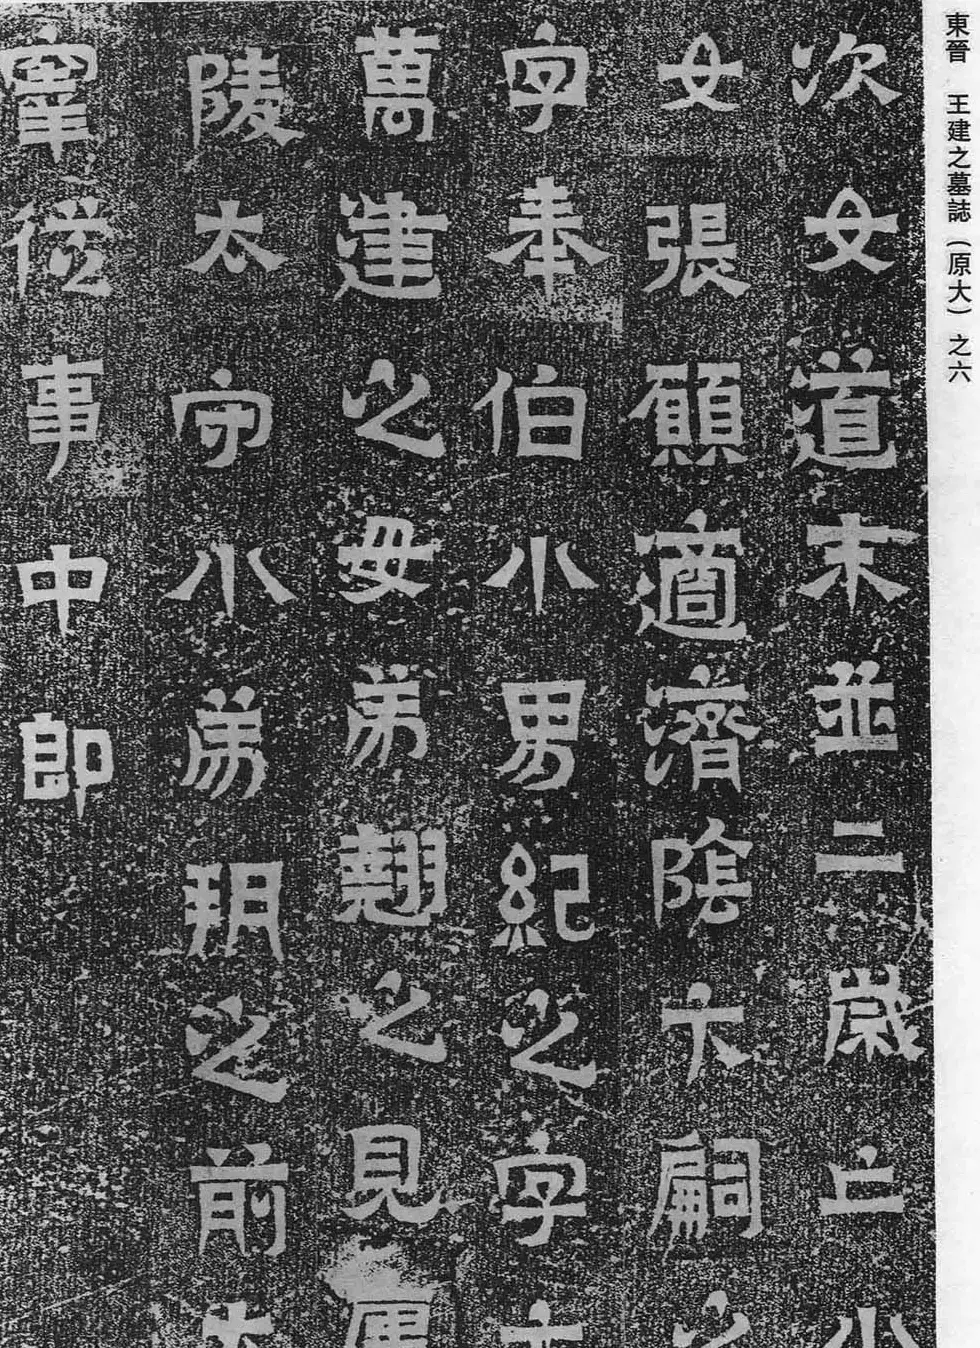 東晉 王建之墓誌（原大）之六
次女道末並二歲亡小
女張願適濟陰卞嗣之
字奉伯小男紀之字元
萬建之母弟翹之見廬
陵太守小弟朔之前太
宰從事中郎